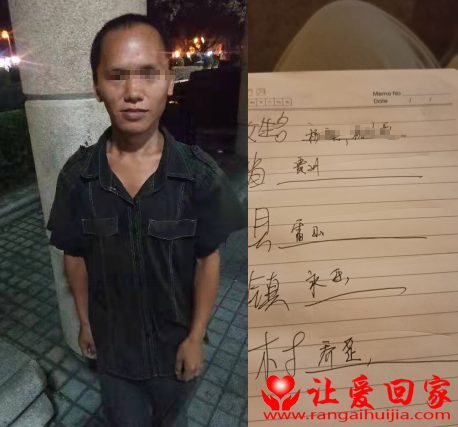 Memo No.
Date / /
姓名
省 贵州
县 雷山
镇 永乐
村 乔歪
让爱回家
www.rangaihuijia.com